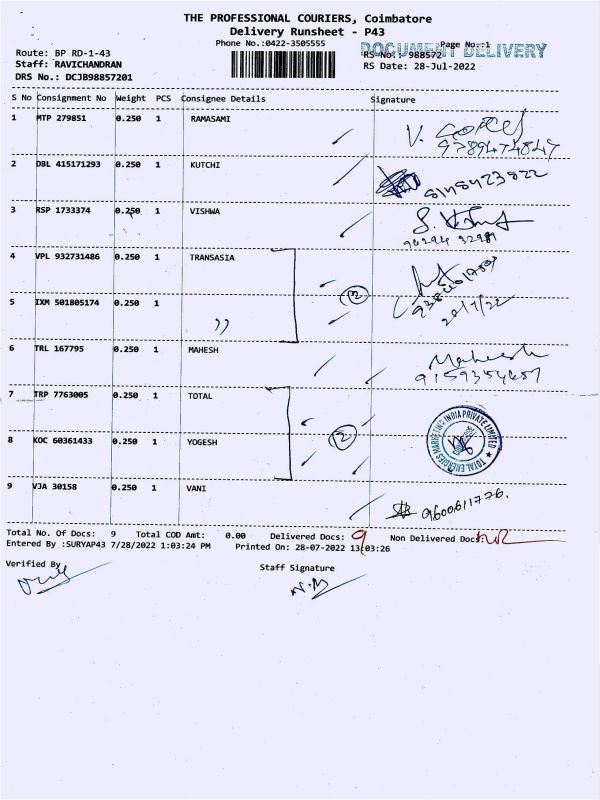 THE PROFESSIONAL COURIERS, Coimbatore
Delivery Runsheet - P43
Phone No.:0422-3505555
DOCUMENT DELIVERY
Page No.:1
Route: BP RD-1-43
RS No.: 988572
Staff: RAVICHANDRAN
RS Date: 28-Jul-2022
DRS No.: DCJB98857201
S No Consignment No Weight PCS Consignee Details Signature
1 MTP 279851 0.250 1 RAMASAMI
9789474847
2 DBL 415171293 0.250 1 KUTCHI
8148423822
3 RSP 1733374 0.250 1 VISHWA
4 VPL 932731486 0.250 1 TRANSASIA
2
5 IXM 501805174 0.250 1 ))
6 TRL 167795 0.250 1 MAHESH
Mahesh
9159354657
7 TRP 7763005 0.250 1 TOTAL
2
8 KOC 60361433 0.250 1 YOGESH
TOTAL ENERGIES MARKETING INDIA PRIVATE LIMITED
9 VJA 30158 0.250 1 VANI
9600611776.
Total No. Of Docs: 9 Total COD Amt: 0.00 Delivered Docs: 9 Non Delivered Docs:
Entered By :SURYAP43 7/28/2022 1:03:24 PM Printed On: 28-07-2022 13:03:26
Verified By
Staff Signature